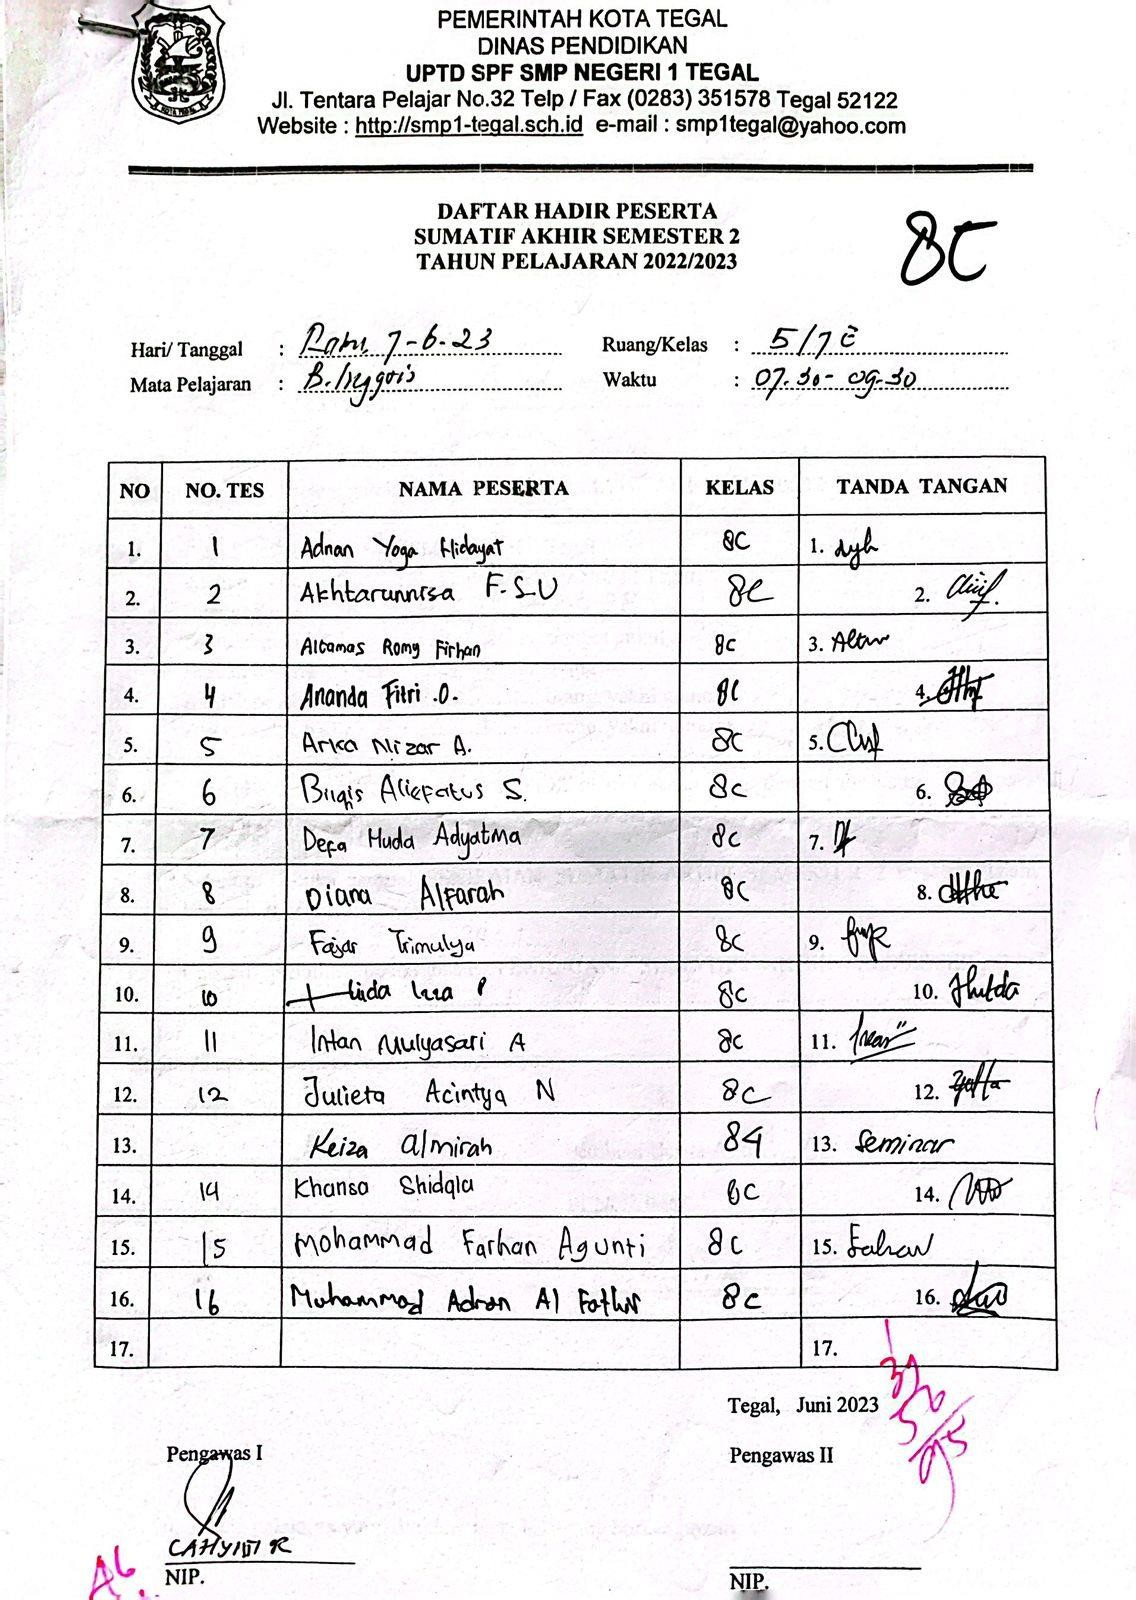 PEMERINTAH KOTA TEGAL
DINAS PENDIDIKAN
UPTD SPF SMP NEGERI 1 TEGAL
Jl. Tentara Pelajar No.32 Telp / Fax (0283) 351578 Tegal 52122
Website : http://smp1-tegal.sch.id e-mail : smp1tegal@yahoo.com
DAFTAR HADIR PESERTA
SUMATIF AKHIR SEMESTER 2
TAHUN PELAJARAN 2022/2023
8C
Hari/ Tanggal : Rabu, 7-6-23 Ruang/Kelas : 5/7E
Mata Pelajaran : B. Inggris Waktu : 07.30-09.30
NO NO. TES NAMA PESERTA KELAS TANDA TANGAN
1. 1 Adnan Yoga Hidayat 8C 1. ayh
2. 2 Akhtarunnisa F.S.U 8C 2.
3. 3 Altamas Romy Firhan 8C 3.
4. 4 Ananda Fitri .O. 8C 4.
5. 5 Arka Nizar A. 8C 5.
6. 6 Bilqis Aliefatus S. 8C 6.
7. 7 Defa Huda Adyatma 8C 7.
8. 8 Diana Alfarah 8C 8.
9. 9 Fajar Trimulya 8C 9.
10. 10 Hilda 8C 10. Hulda
11. 11 Intan Mulyasari A 8C 11.
12. 12 Julieta Acintya N 8C 12.
13. Keiza Almirah 8G 13. Seminar
14. 14 Khansa Shidqia 8C 14.
15. 15 Mohammad Farhan Agunti 8C 15. Farhan
16. 16 Muhammad Adnan Al Fathir 8C 16.
17. 17.
Tegal, Juni 2023
Pengawas I Pengawas II
CAHYANI R
NIP. NIP.